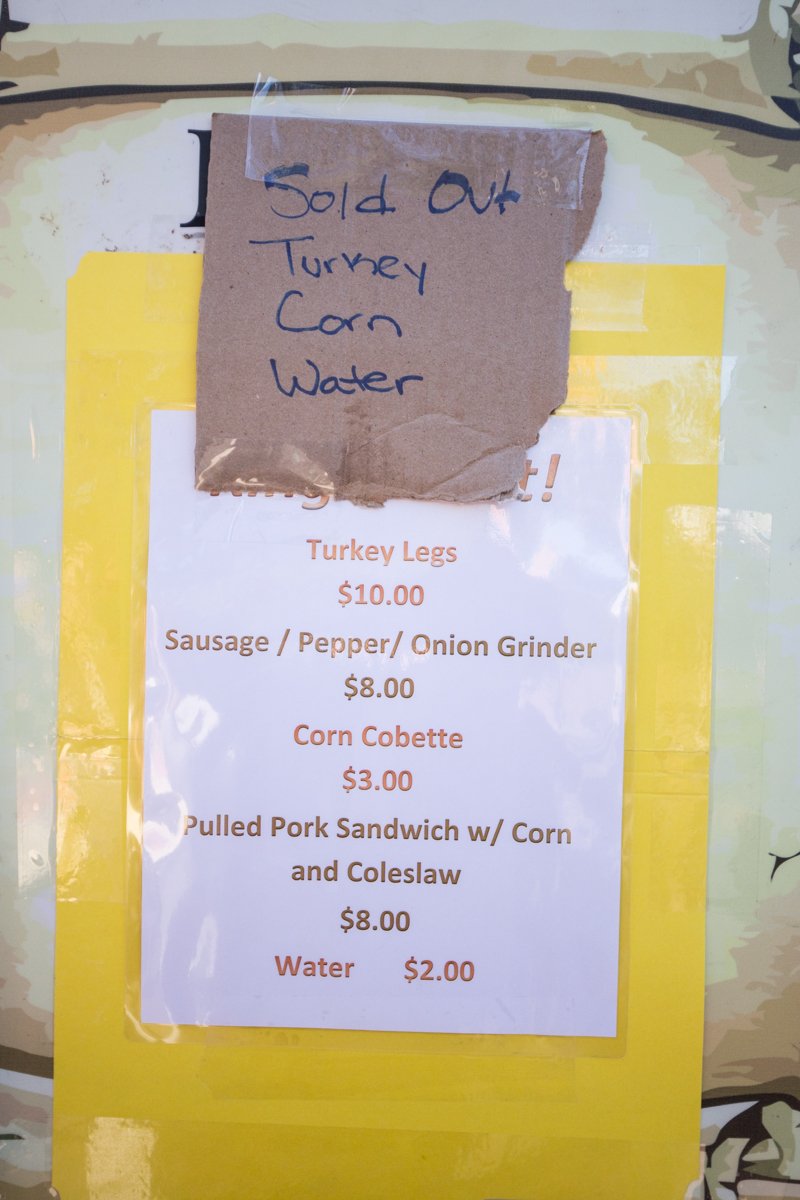 Sold Out
Turkey
Corn
Water
Turkey Legs
$10.00
Sausage / Pepper/ Onion Grinder
$8.00
Corn Cobette
$3.00
Pulled Pork Sandwich w/ Corn
and Coleslaw
$8.00
Water $2.00